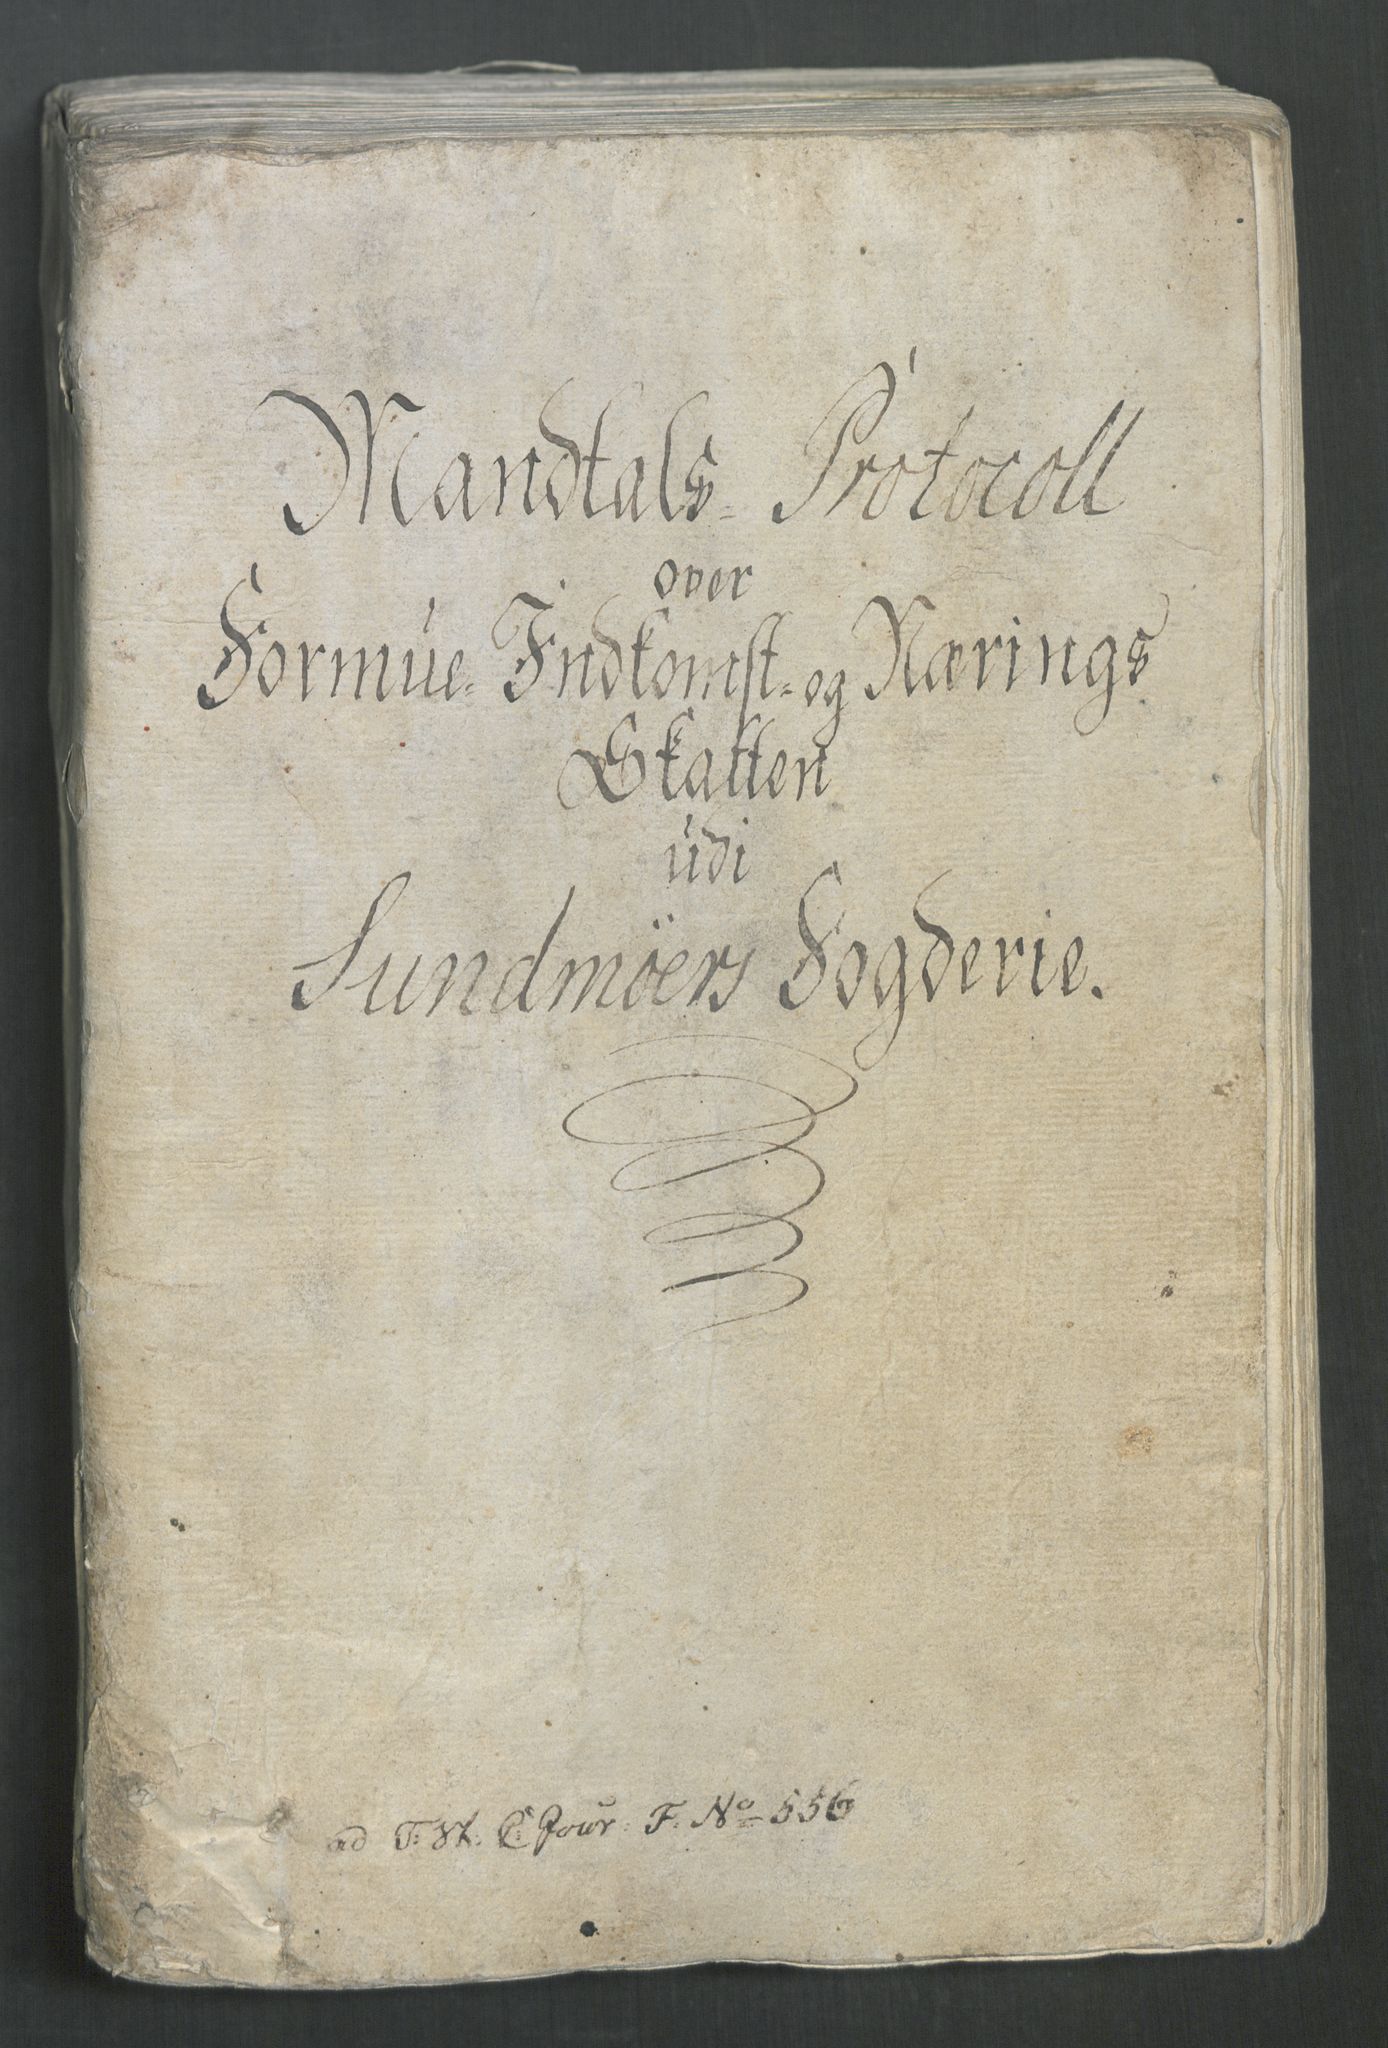 Mandtals- Protocoll
over
Formue- Indkomst- og Nærings
Skatten
udi
Sundmöers Fogderie.
ad T: K: C: Jour. F. No 556